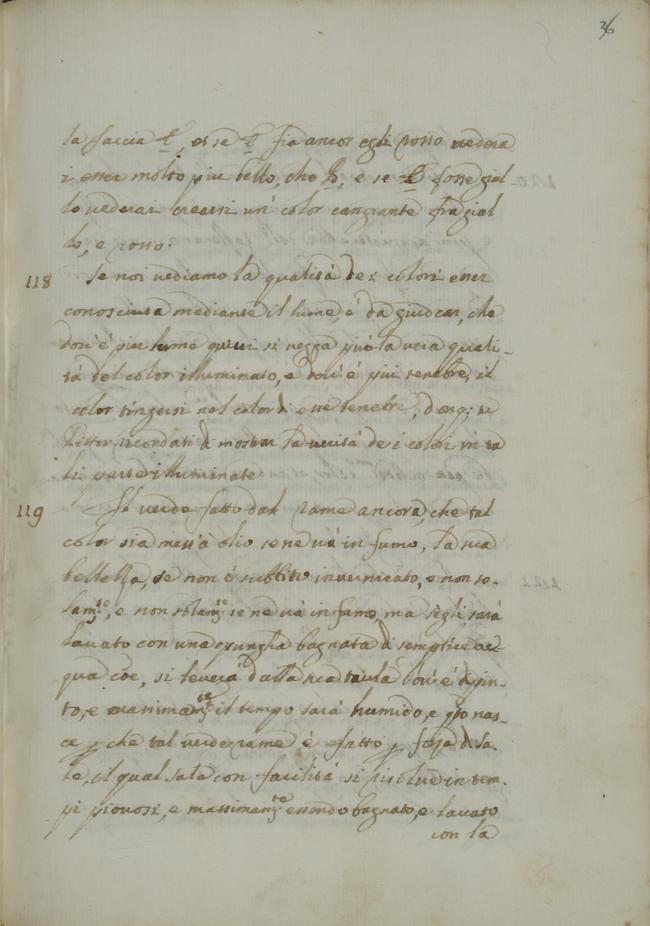 36
la faccia E, et se E fia ancor egli rosso vedera-
i esser molto piu bello, che B, e se E fosse gial
lo vederai crearsi un' color cangiante fra gial
lo, e rosso.
118 Se noi vediamo la qualità de i colori esser
conosciuta mediante il lume, è da giudicar, che
dov' è piu lume quivi si vegga più la vera quali-
tà del color illuminato, e dov' è più tenebre, il
color tingersi nel color di esse tenebre,
Pittor ricordati di mostrar la verità de i colori in ta
li parte illuminate
119 Il verde fatto dal rame ancora, che tal
color sia mess' à olio se ne và in fumo, la sua
bellezza, se non è subbito invernicato, e non so-
lam.te, e non solam.te se ne và in fumo, ma s'egli sarà
lavato con una spunglia bagnata di semplice ac-
qua cõe, si leverà dalla sua taula dov' è dipin-
to, e massimam.te il tempo sarà humido, e q̃to nas-
ce p che tal verderame è fatto p forza di sa-
le, il qual sale con facilità si risolve in tem-
pi piovosi, e massimam.te essendo bagnato, e lavato
con la